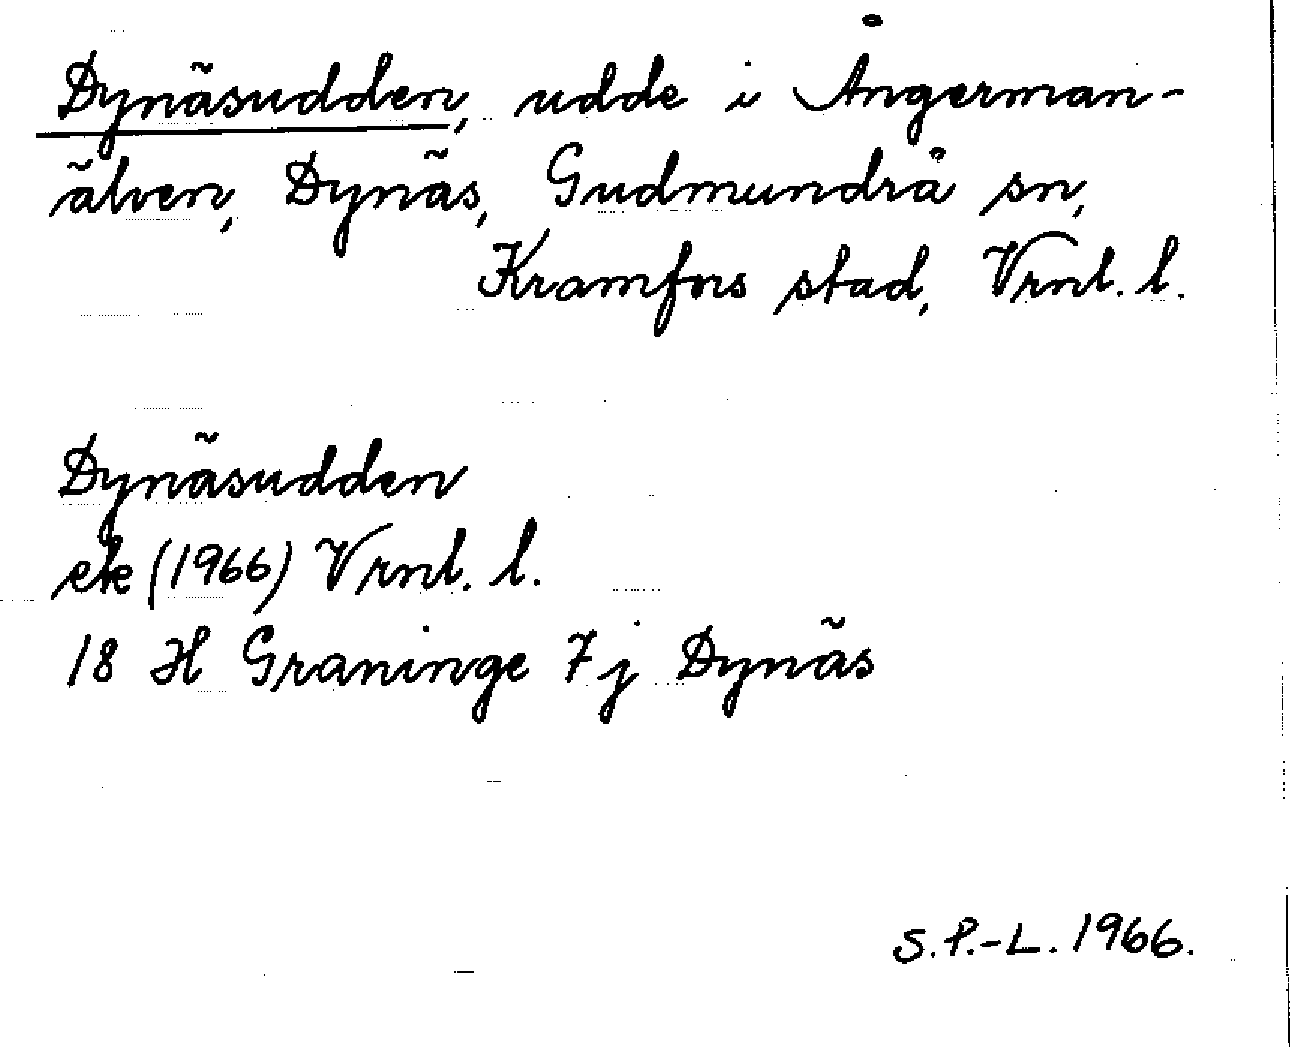 Dynäsudden, udde i Ångerman-
älven, Dynäs, Gudmundrå sn,
Kramfors stad, Vrnl. l.
Dynäsudden
ek (1966) Vrnl. l.
18 H Graninge 7j Dynäs
S.P.-L. 1966.